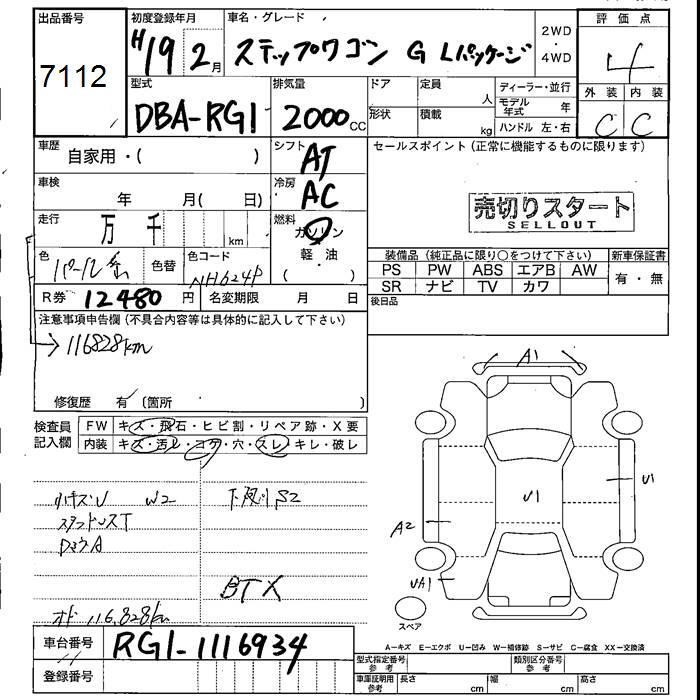 出品番号
7112
初度登録年月
H19 2月
車名・グレード
ステップワゴン G Lパッケージ
2WD
・
4WD
評価点
4
型式
DBA-RG1
排気量
2000cc
ドア
定員
人
ディーラー・並行
モデル年式 年
形状
積載
kg
ハンドル 左・右
外装 内装
C C
車歴
自家用・( )
シフト
AT
セールスポイント (正常に機能するものに限ります)
売切りスタート
SELLOUT
車検
年 月( 日)
冷房
AC
走行
万 千 km
燃料
ガソリン
軽・油
( )
色
パール
色替
色コード
NH624P
装備品 (純正品に限り○をつけて下さい)
新車保証書
PS PW ABS エアB AW
SR ナビ TV カワ
有・無
R券 12480円
名変期限 月 日
後日品
注意事項申告欄 (不具合内容等は具体的に記入して下さい)
→116828km
修復歴 有 (箇所 )
検査員
記入欄
FW キズ・飛石・ヒビ割・リペア跡・X要
内装 キズ・汚レ・コゲ・穴・スレ・キレ・破レ
W2
S2
BTX
オド 116,828km
A1
U1
U1
A2
UA1
スペア
A－キズ E－エクボ U－凹み W－補修跡 S－サビ C－腐食 XX－交換済
車台番号
RG1-1116934
登録番号
型式指定番号
参考
類別区分番号
参考
車庫証明用
参考
長さ cm
幅 cm
高さ cm